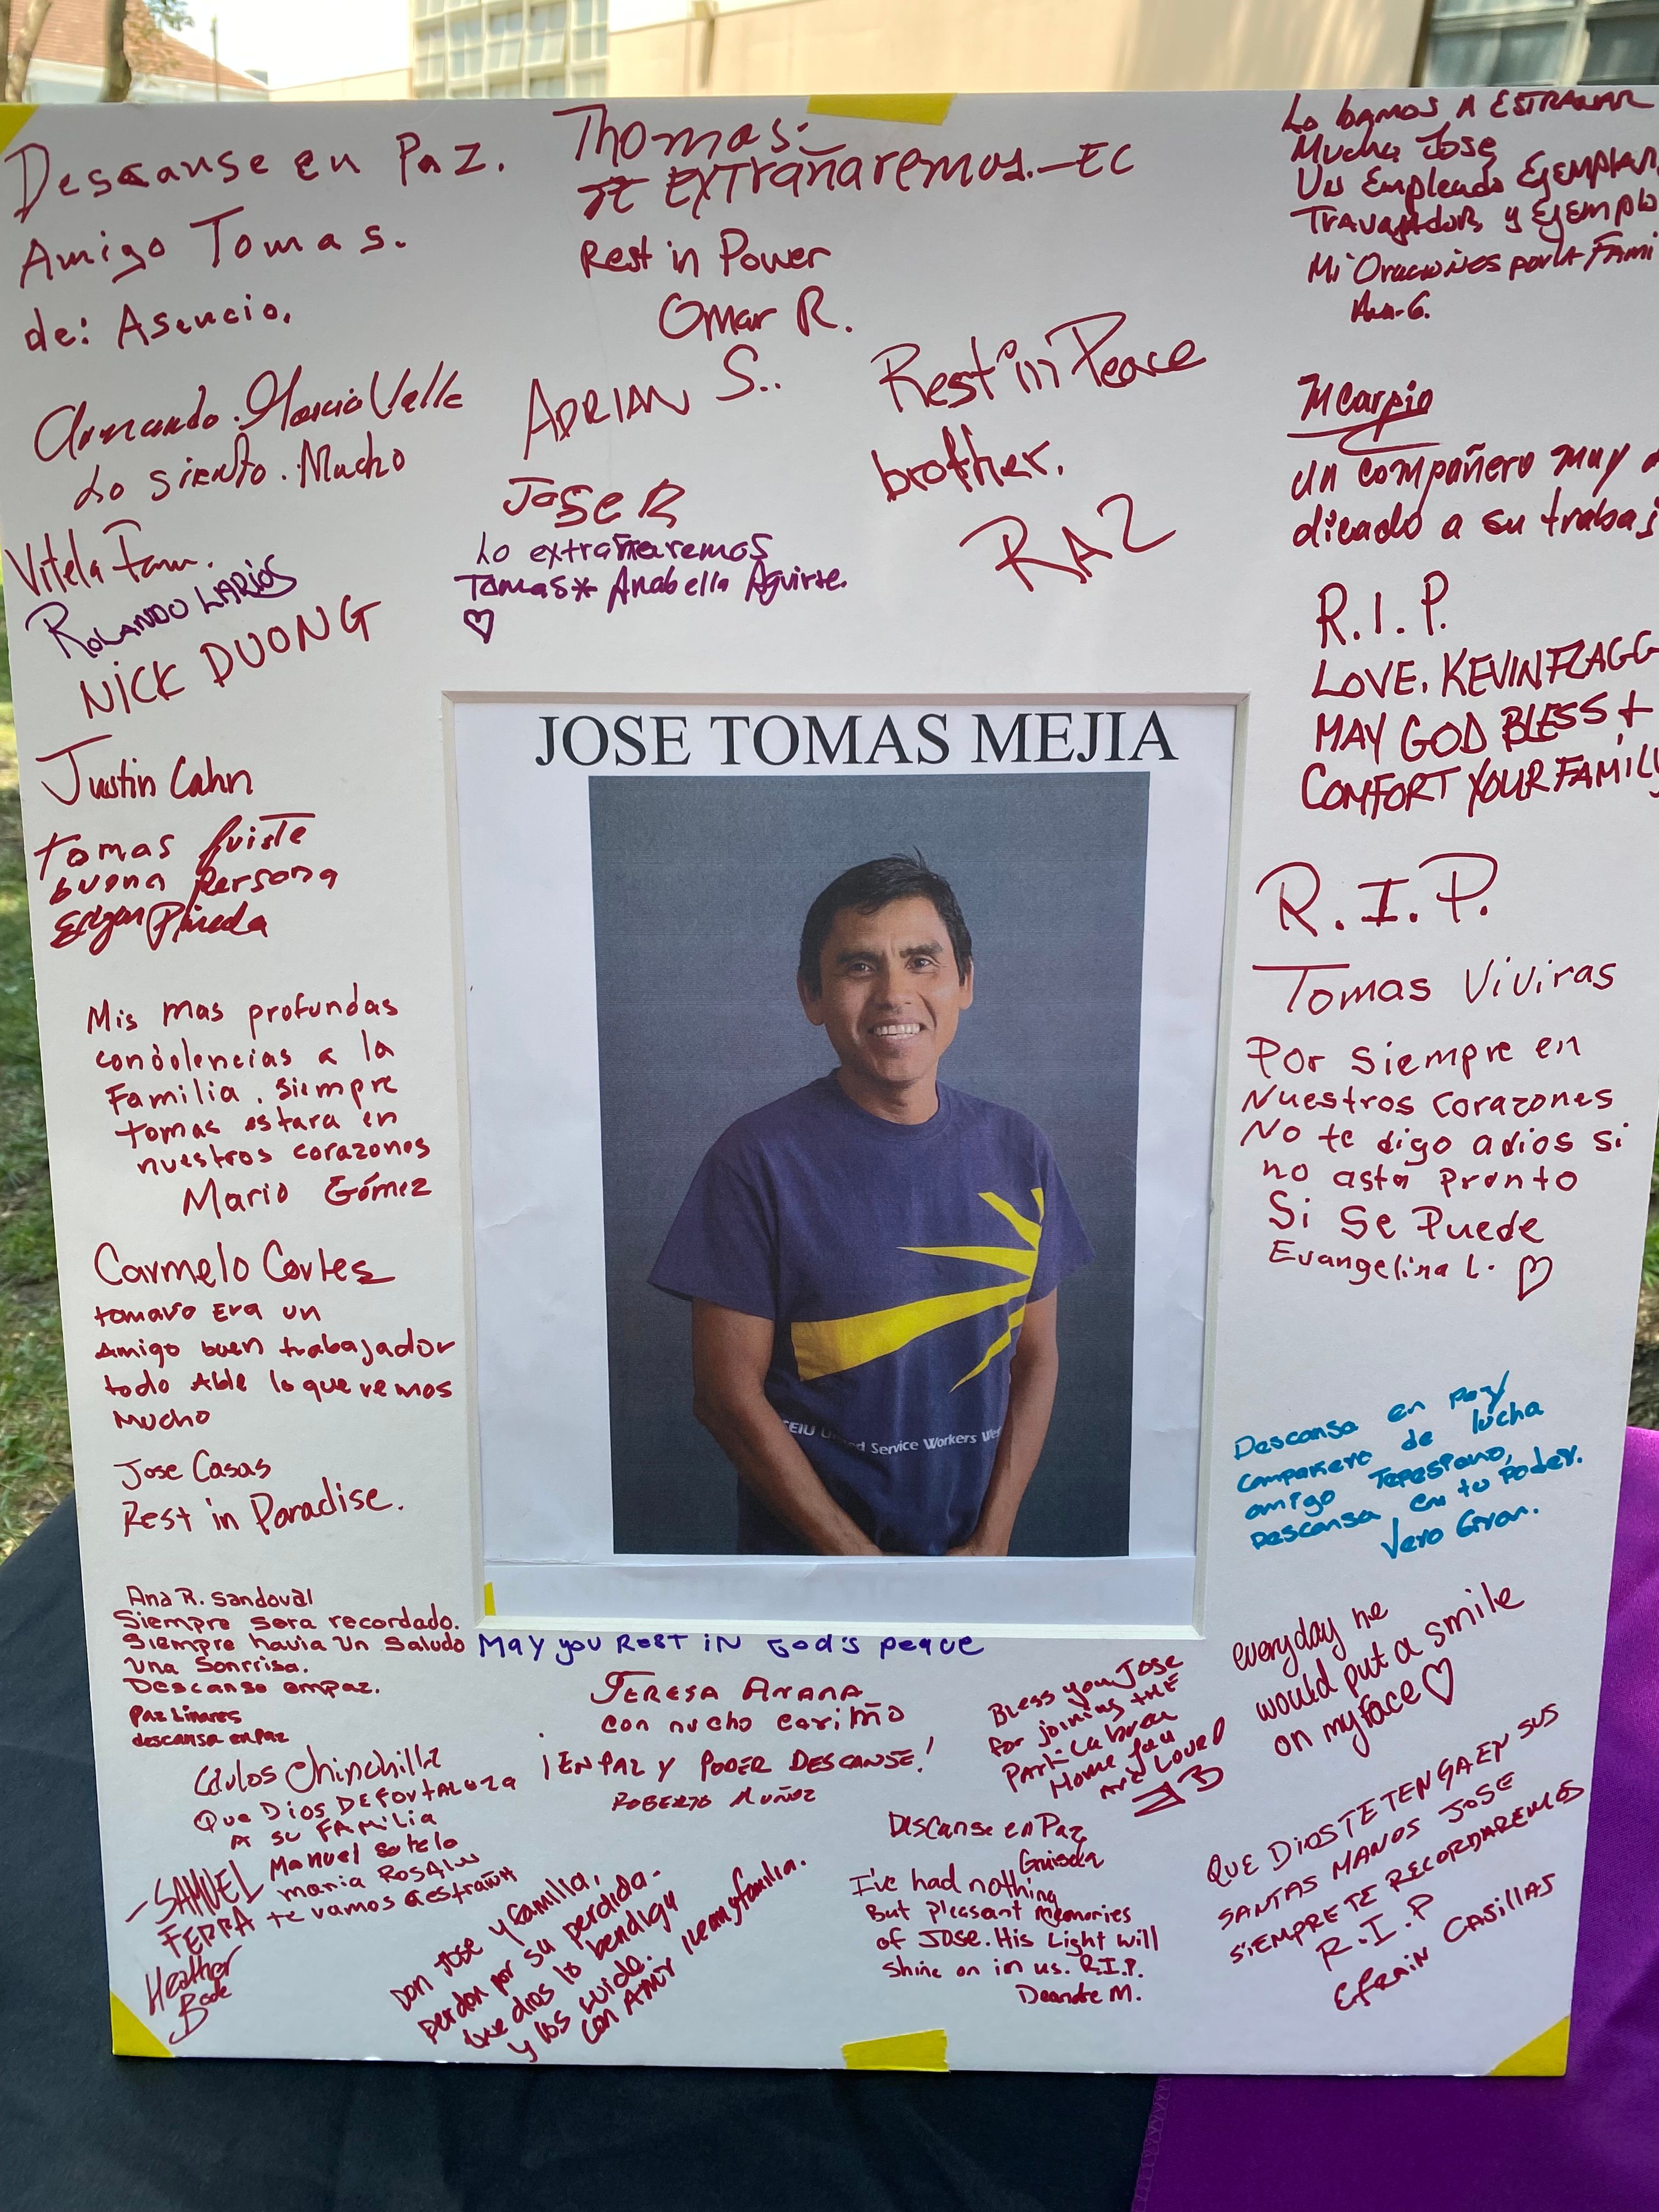 Descanse en Paz.
Amigo Tomas.
de: Asencio.
Thomas:
te Extrañaremos.-EC
Rest in Power
Omar R.
Lo bamos A ESTRAÑAR
Mucho Jose
Un Empleado Ejemplar
Travajador, y Ejemplo
Mi Oraciones por la Fami
Ana-G.
Armando. Garcia Valle
Lo siento. Mucho
ADRIAN S..
Rest in Peace
brother.
RAZ
Jose R
Lo extrañaremos
Tomas* Anabella Aguirre.
Vitela Fam.
ROLANDO LARIOS
NICK DUONG
MCarpio
un compañero muy
dicado a su trabaj
R.I.P.
LOVE, KEVIN FLAGG
MAY GOD BLESS +
COMFORT YOUR FAMILY
Justin Cahn
tomas fuiste
buena Persona
Edgar Pineda
JOSE TOMAS MEJIA
SEIU United Service Workers We
R.I.P.
Tomas Viviras
Por siempre en
Nuestros corazones
No te digo adios si
no asta pronto
Si Se Puede
Evangelina L.
Mis mas profundas
condolencias a la
Familia. siempre
tomas estara en
nuestros corazones
Mario Gómez
Carmelo Cortes
tomaro Era un
Amigo buen trabajador
todo Able lo que remos
mucho
Jose Casas
Rest in Paradise.
Descansa en paz
compañero de lucha
amigo Tepesiano,
Descansa en tu poder.
Vero Giron.
Ana R. Sandoval
Siempre sera recordado.
Siempre havia un saludo
una sonrrisa.
Descanse empaz.
May you REST iN God's peaue
Paz Linares
descansa en Paz
TERESA ARANA
con nucho cariño
¡EN PAZ Y PODER DESCANSE!
ROBERTO MUÑOZ
Bless you Jose
for joining THE
Part La brea
Home you
are Loved
everyday he
would put a smile
on my face
Carlos Chinchilla
Que Dios DE FORTALEZA
A SU FAMILIA
Manuel Sotelo
maria Rosales
te vamos a estrañar
-SAMUEL
FERRA
Heather
Bode
Don Jose y familia,
perdon por su perdida.
que dios lo bendiga
y los cuide.
con Amor Ileana y familia.
Descanse en Paz
Griselda
I've had nothing
But pleasant memories
of Jose. His Light will
Shine on in us. R.I.P.
Deandre M.
QUE DIOS TE TENGA EN SUS
SANTAS MANOS JOSE
SIEMPRE TE RECORDAREMOS
R.I.P
EFRAIN CASILLAS